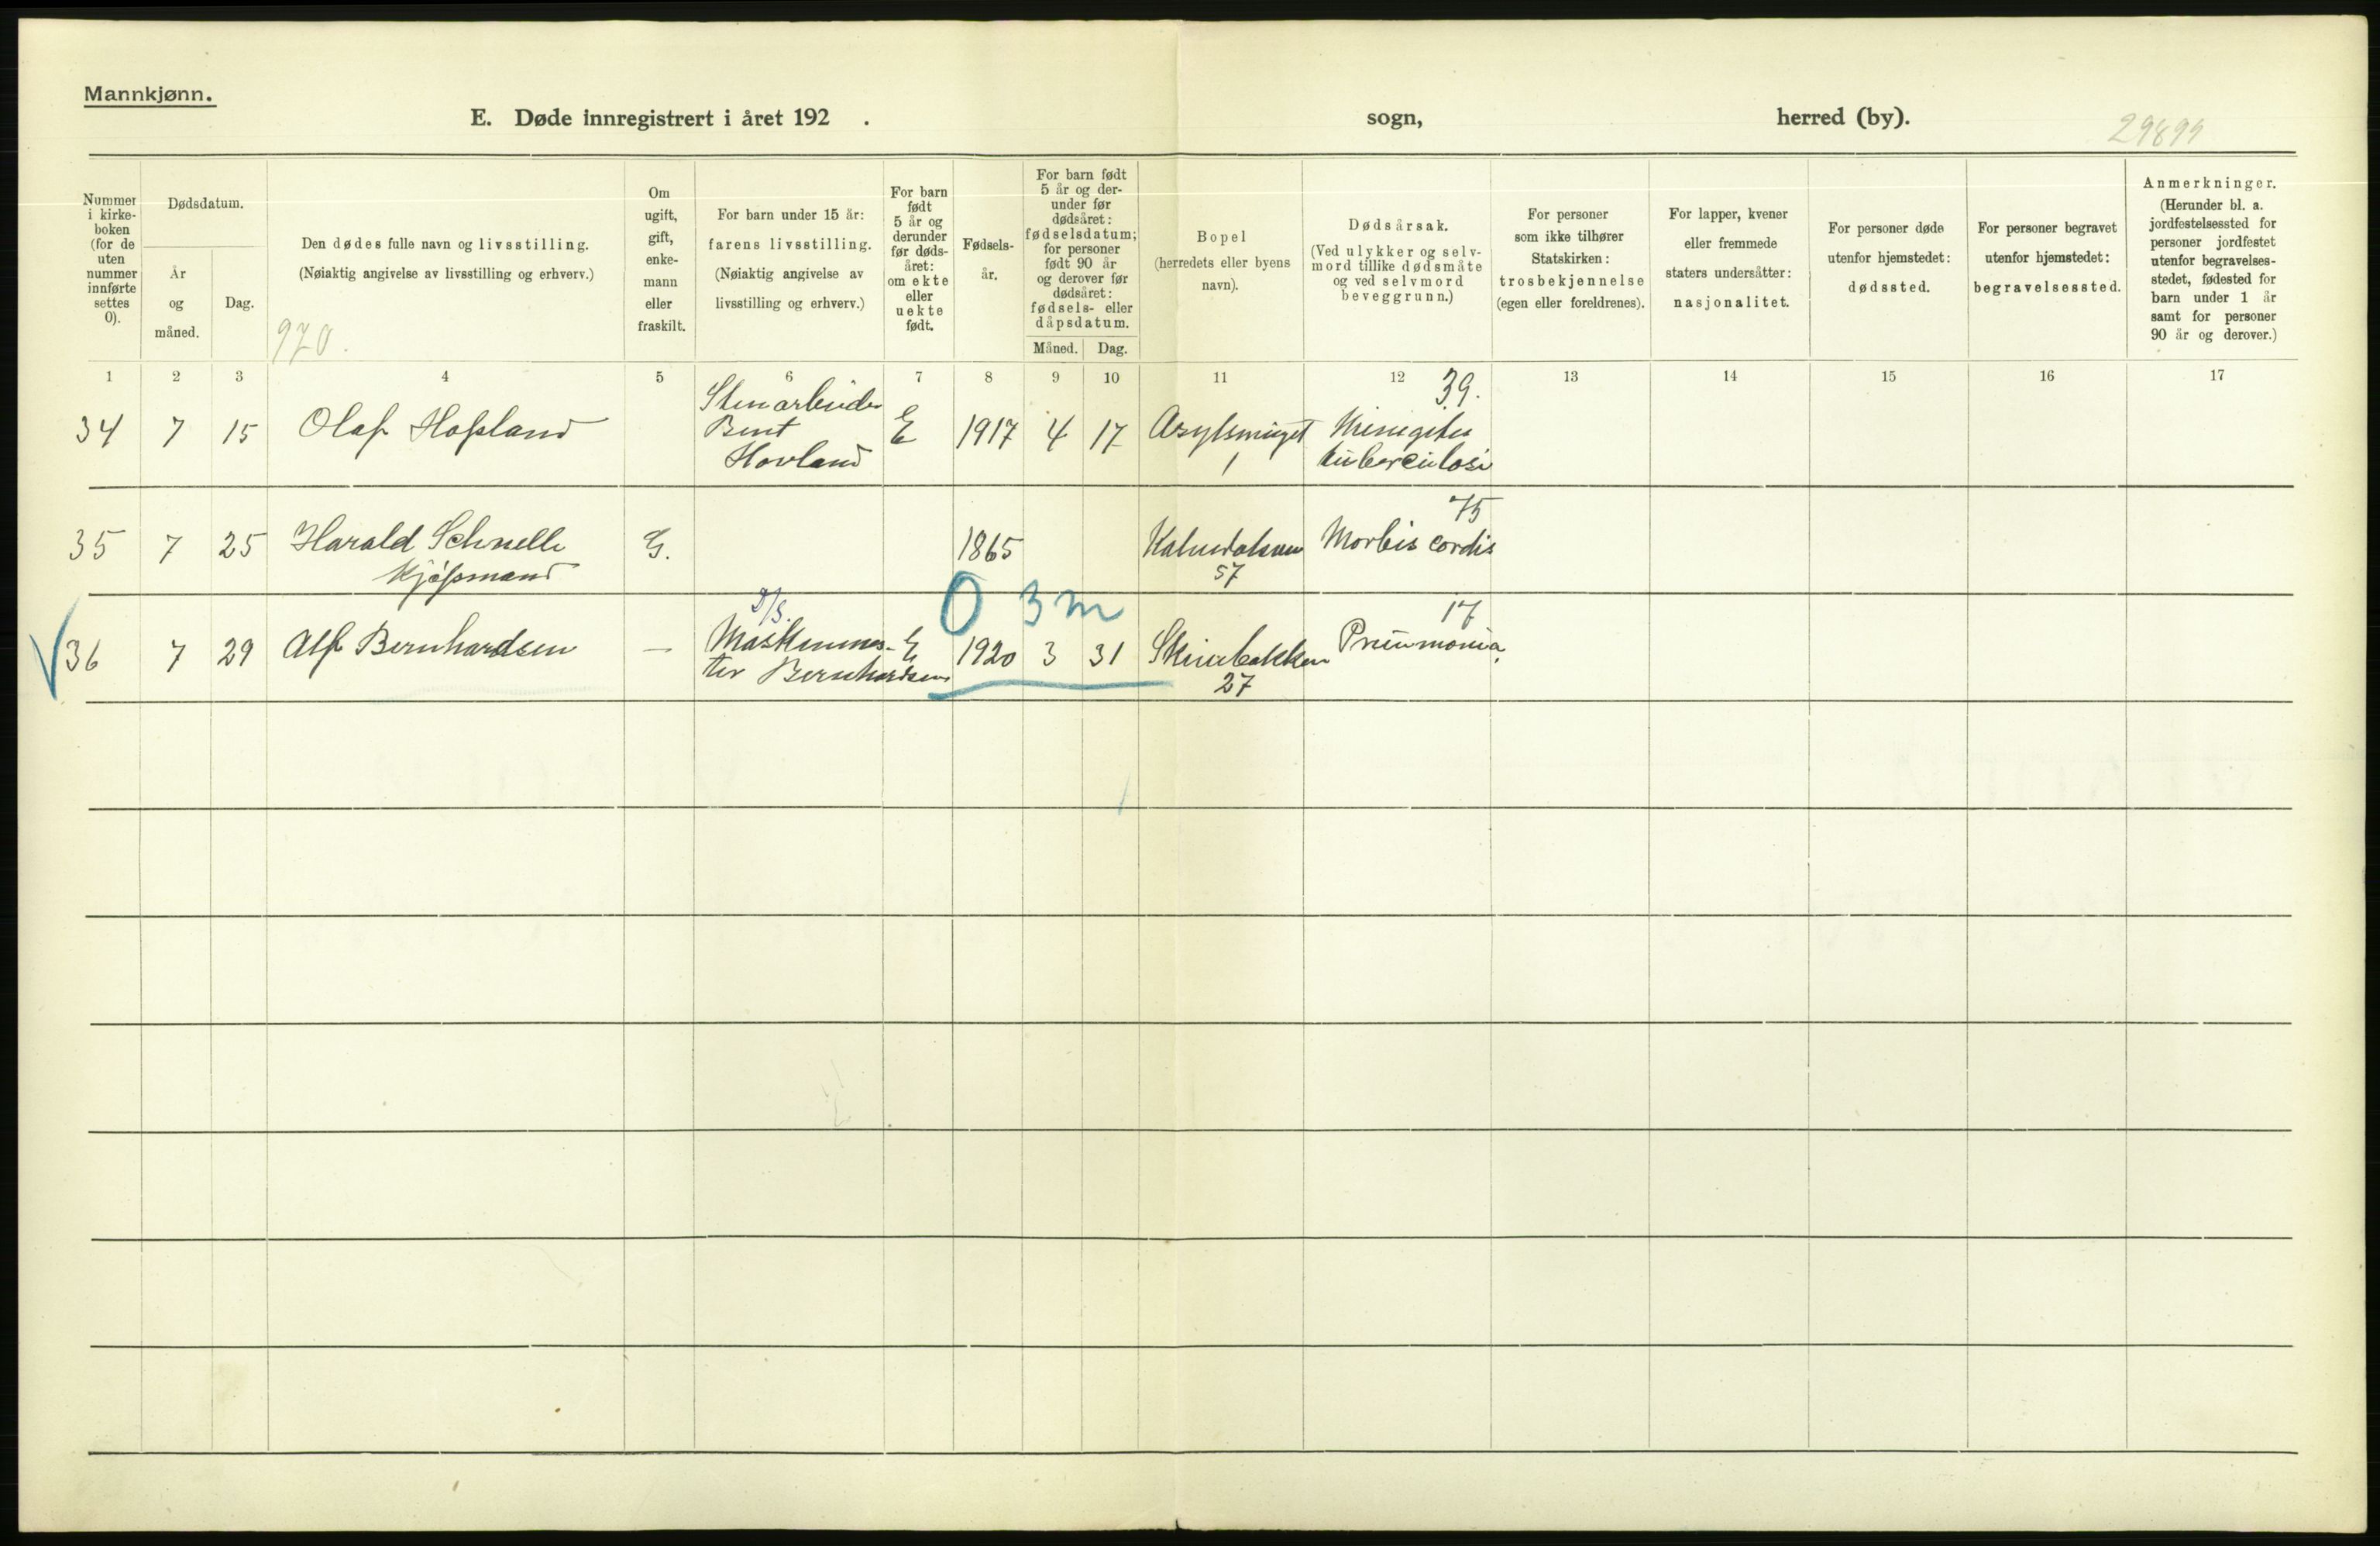 Mannkjønn.
E. Døde innregistrert i året 192 . sogn, herred (by).
29899
Nummer i kirke-boken (for de uten nummer innførte settes 0).
Dødsdatum.
År og måned.
Dag.
Den dødes fulle navn og livsstilling.
(Nøiaktig angivelse av livsstilling og erhverv.)
970.
Om ugift, gift, enke-mann eller fraskilt.
For barn under 15 år:
farens livsstilling.
(Nøiaktig angivelse av
livsstilling og erhverv.)
For barn født 5 år og derunder før døds-året: om ekte eller uekte født.
Fødsels-år.
For barn født 5 år og der-under før dødsåret: fødselsdatum; for personer født 90 år og derover før dødsåret: fødsels- eller dåpsdatum.
Måned. Dag.
Bopel
(herredets eller byens
navn).
Dødsårsak.
(Ved ulykker og selv-
mord tillike dødsmåte
og ved selvmord
beveggrunn.)
For personer
som ikke tilhører
Statskirken:
trosbekjennelse
(egen eller foreldrenes).
For lapper, kvener
eller fremmede
staters undersåtter:
nasjonalitet.
For personer døde
utenfor hjemstedet:
dødssted.
For personer begravet
utenfor hjemstedet:
begravelsessted.
Anmerkninger.
(Herunder bl. a.
jordfestelsessted for
personer jordfestet
utenfor begravelses-
stedet, fødested for
barn under 1 år
samt for personer
90 år og derover.)
1 2 3 4 5 6 7 8 9 10 11 12 13 14 15 16 17
39.
Stenarbeider
34 7 15 Olaf Hofland Bent E 1917 4 17 Asylsmuget
Hovland 1 tuberculosi
75
35 7 25 Harald Schnelle G. 1865 Kalvedalsvei Morbis cordis
Kjøfmand 57
D/S. 0 3 m 17
36 7 29 Alf Bernhardsen — Maskinmes- E 1920 3 31 Skivebakken Pneumonia
ter Bernhardsen 27